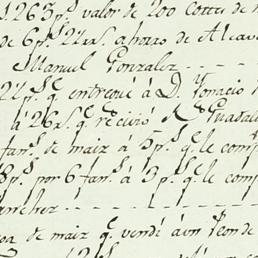 1263 p.s valor de 200 cortes de
de 6 p.s 22 rs. ahorro de Alcav
Manuel Gonzalez
22 p.s q.e entregué á D. Ygnacio
á 26 rs. q.e recivió D. Guadal
fan.s de maiz á 5 p.s q.e le comp
8 p.s por 6 fan.s á 3 p.s q.e le comp
anchez
de maiz q.e vendi á un Peon de